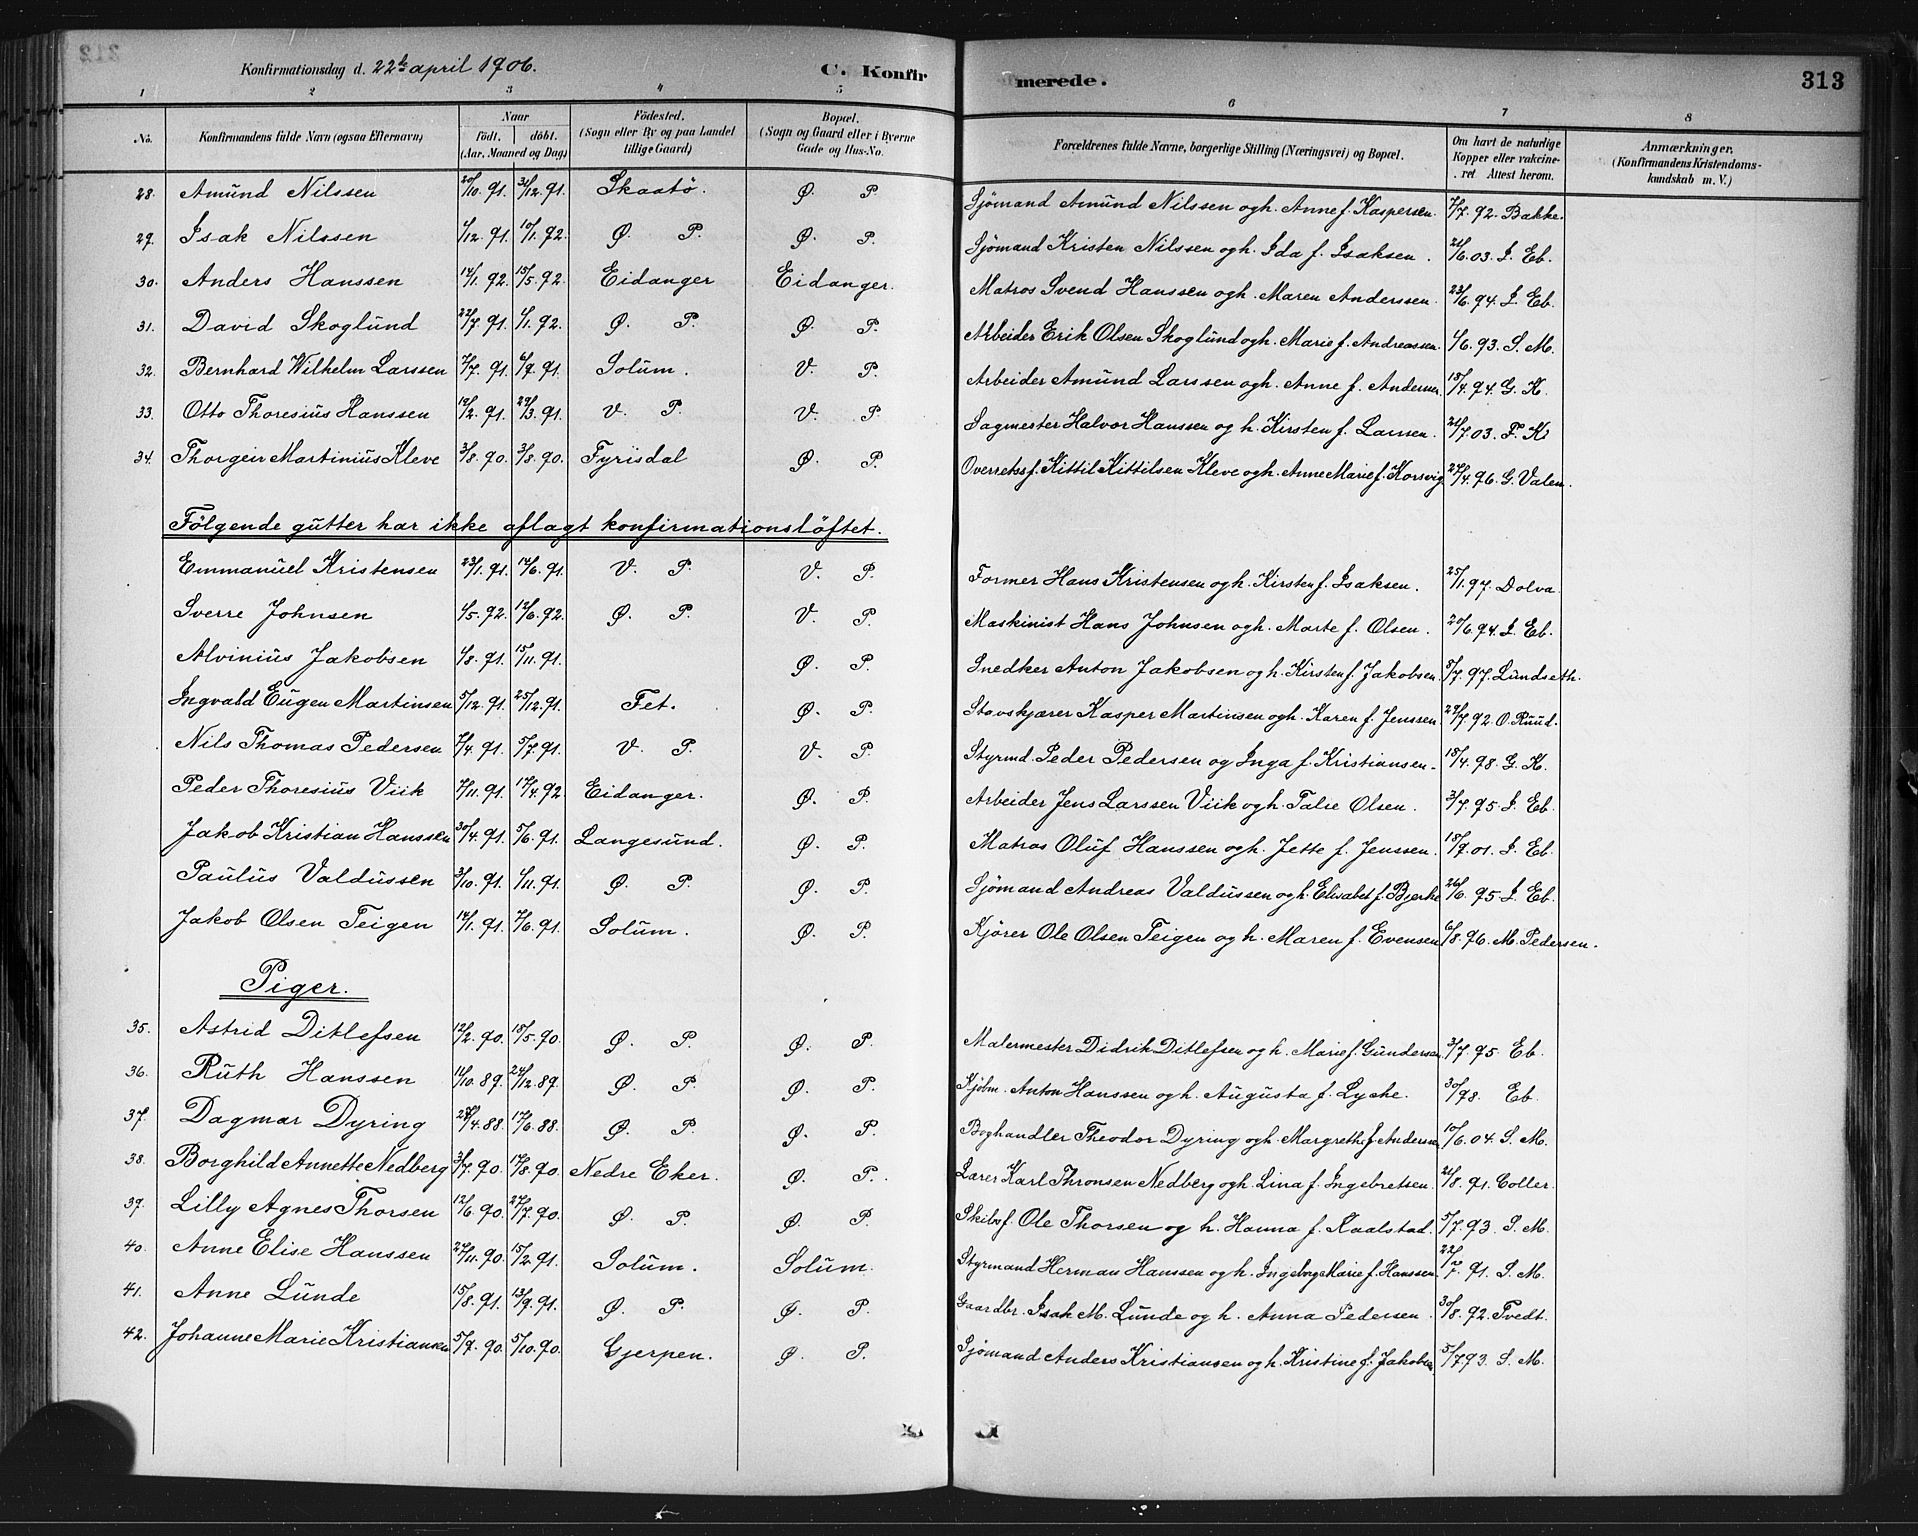 Konfirmationsdag d. 22de april 1906. C. Konfirmerede. 313
1 2 3 4 5 6 7 8
No. Konfirmandens fulde Navn (ogsaa Efternavn) Naar født. døbt. (Aar, Maaned og Dag) Fødested. (Sogn eller By og paa Landet tillige Gaard) Bopæl. (Sogn og Gaard eller i Byerne Gade og Hus-No. Forældrenes fulde Navne, borgerlige Stilling (Næringsvei) og Bopæl. Om havt de naturlige Kopper eller vaccineret Attest herom. Anmærkninger. (Konfirmandens Kristendomskundskab m. V.)
28. Amund Nilssen 20/10. 91. 31/12. 91. Skaatø. Ø. P. Sjømand Amund Nilssen og h. Anne f. Kaspersen. 7/7. 92. Bakke.
29. Isak Nilssen 1/12. 91. 10/1. 92. Ø. P. Ø. P. Sjømand Kristen Nilssen og h. Ida f. Isaksen. 21/6. 03. J. Eb.
30. Anders Hanssen 14/1. 92. 15/5. 92. Eidanger Eidanger. Matros Svend Hanssen og h. Maren Anderssen. 23/6. 94. J. Eb.
31. David Skoglund 22/7. 91. 1/1. 92. Ø. P. Ø. P. Arbeider Erik Olsen Skoglund og h. Marie f. Andreassen. 1/6. 93. S. M.
32. Bernhard Wilhelm Larssen 7/7. 91. 6/9. 91. Solum. V. P. Arbeider Amund Larssen og h. Anne f. Andersen 18/4. 94. G. K.
33. Otto Thoresius Hanssen 12/2. 91. 29/3. 91. V. P. V. P. Sagmester Halvor Hanssen og h. Kirsten f. Larsen. 21/7. 03. F. K
34. Thorgeir Martinius Kleve 3/8. 90. 3/8. 90. Fyrisdal Ø. P. Overretssf. Kittil Kittilsen Kleve og h. Anne Marie f. Korsvig 27/4. 96. G. Valen.
Følgende gutter har ikke aflagt konfirmationsløftet.
Emmanuel Kristensen 23/1. 91. 14/6. 91. V. P. V. P. Former Hans Kristensen og h. Kirsten f. Isaksen. 25/1. 97. Dolva.
Sverre Johnsen 1/5. 92. 12/6. 92. Ø. P. V. P. Maskinist Hans Johnsen og h. Marte f. Olsen. 20/6. 94. J. Eb.
Alvinius Jakobsen 1/8. 91. 15/11. 91. Ø. P. Snedker Anton Jakobsen og h. Kirsten f. Jakobsen. 8/7. 97. Lundseth.
Ingvald Eugen Martinsen 5/12. 91. 25/12. 91. Fet. Ø. P. Stavskjærer Kasper Martinsen og h. Karen f. Jenssen. 29/7. 92. O. Ruud.
Nils Thomas Pedersen 7/4. 91. 5/7. 91. V. P. V. P. Styrmd. Peder Pedersen og Inga f. Kristiansen. 18/4. 98. G. K.
Peder Thoresius Viik 7/11. 91. 17/4. 92 Eidanger. Ø. P. Arbeider Jens Larssen Viik og h. Talie Olsen. 3/7. 95. J. Eb.
Jakob Kristian Hanssen 30/4. 91. 5/6. 91. Langesund. Ø. P. Matros Oluf Hanssen og h. Jette f. Jenssen. 18/9. 01. J. Eb.
Paulus Valdussen 3/10. 91. 1/11. 91. Ø. P. Ø. P. Sjømand Andreas Valdussen og h. Elisabet f. Bjerke 26/6. 95. J. Eb.
Jakob Olsen Teigen 14/1. 91. 7/6. 91. Solum. Ø. P. Kjører Ole Olsen Teigen og h. Maren f. Evensen 6/8. 96. M. Pedersen.
Piger.
35. Astrid Ditlefsen 12/2. 90. 18/5. 90. Ø. P. Ø. P. Malermester Didrik Ditlefsen og h. Marie f. Gundersen 3/7. 95. Eb.
36. Ruth Hanssen 11/10. 89. 24/12. 89. Ø. P. Ø. P. Kjøbm. Anton Hanssen og h. Augusta f. Lyche. 30/98. Eb.
37. Dagmar Dyring 28/4. 88. 17/6. 88. Ø. P. Ø. P. Boghandler Theodor Dyring og h. Margrethe f. Andersen 10/6. 04. S. M.
38. Borghild Annette Nedberg 3/7. 90. 17/8. 90. Nedre Eker. Ø. P. Lærer Karl Thronsen Nedberg og h. Lina f. Ingebretsen. 21/8. 91. Coller.
39. Lilly Agnes Thorsen 12/6. 90. 27/7. 90. Ø. P. Ø. P. Skibsf. Ole Thorsen og h. Hanna f. Kaalstad. 5/7. 93. S. M.
40. Anne Elise Hanssen 27/11. 90. 15/2. 91. Solum. Solum. Styrmand Herman Hanssen og h. Ingeborg Marie f. Hanssen. 22/7. 91. S. M.
41. Anne Lunde 15/8. 91. 13/9. 91. Ø. P. Ø. P. Gaardbr. Isak M. Lunde og h. Anna Pedersen. 30/8. 92. Tvedt.
42. Johanne Marie Kristiansen 5/9. 90. 5/10. 90. Gjerpen. Ø. P. Sjømand Anders Kristiansen og h. Kristine f. Jakobsen 5/7 93. S. M.